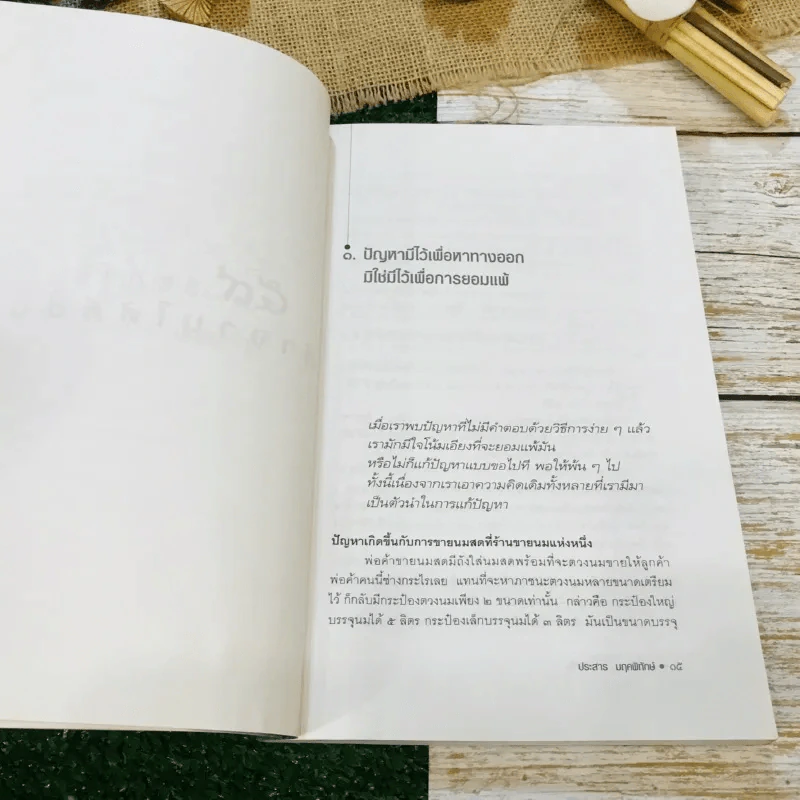 ๑. ปัญหามีไว้เพื่อหาทางออก
มิใช่มีไว้เพื่อการยอมแพ้
เมื่อเราพบปัญหาที่ไม่มีคำตอบด้วยวิธีการง่าย ๆ แล้ว
เรามักมีใจโน้มเอียงที่จะยอมแพ้มัน
หรือไม่ก็แก้ปัญหาแบบขอไปที พอให้พ้น ๆ ไป
ทั้งนี้เนื่องจากเราเอาความคิดเดิมทั้งหลายที่เรามีมา
เป็นตัวนำในการแก้ปัญหา
ปัญหาเกิดขึ้นกับการขายนมสดที่ร้านขายนมแห่งหนึ่ง
พ่อค้าขายนมสดมีถังใส่นมสดพร้อมที่จะตวงนมขายให้ลูกค้า
พ่อค้าคนนี้ช่างกระไรเลย แทนที่จะหาภาชนะตวงนมหลายขนาดเตรียม
ไว้ ก็กลับมีกระป๋องตวงนมเพียง ๒ ขนาดเท่านั้น กล่าวคือ กระป๋องใหญ่
บรรจุนมได้ ๕ ลิตร กระป๋องเล็กบรรจุนมได้ ๓ ลิตร มันเป็นขนาดบรรจุ
ประสาร มฤคพิทักษ์ • ๑๕